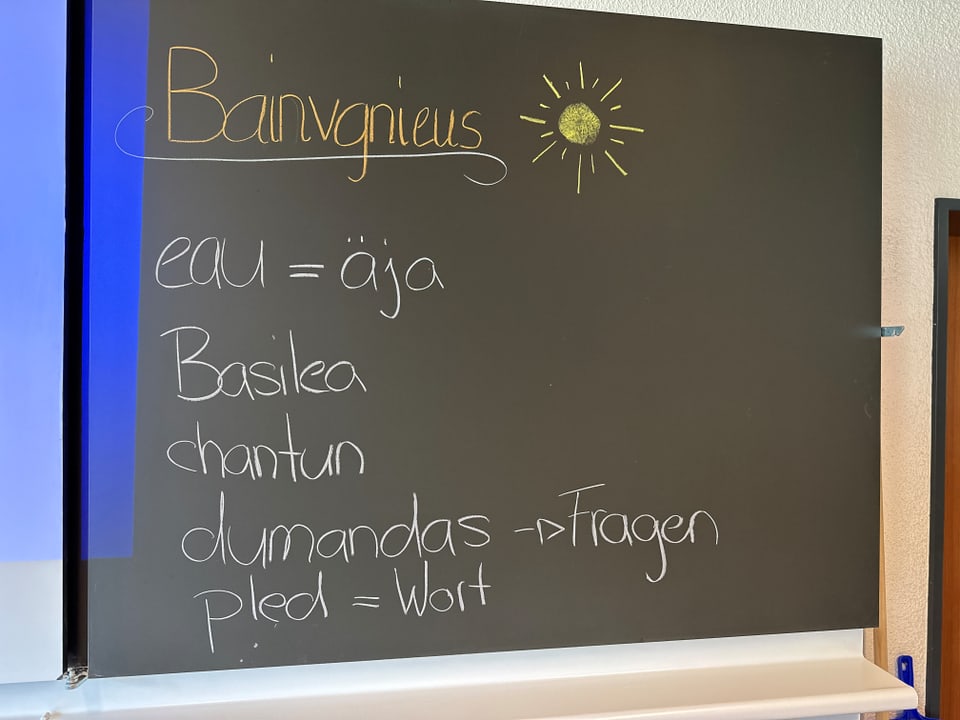 Bainvgnieus
eau = äja
Basilea
chantun
dumandas -> Fragen
pled = Wort